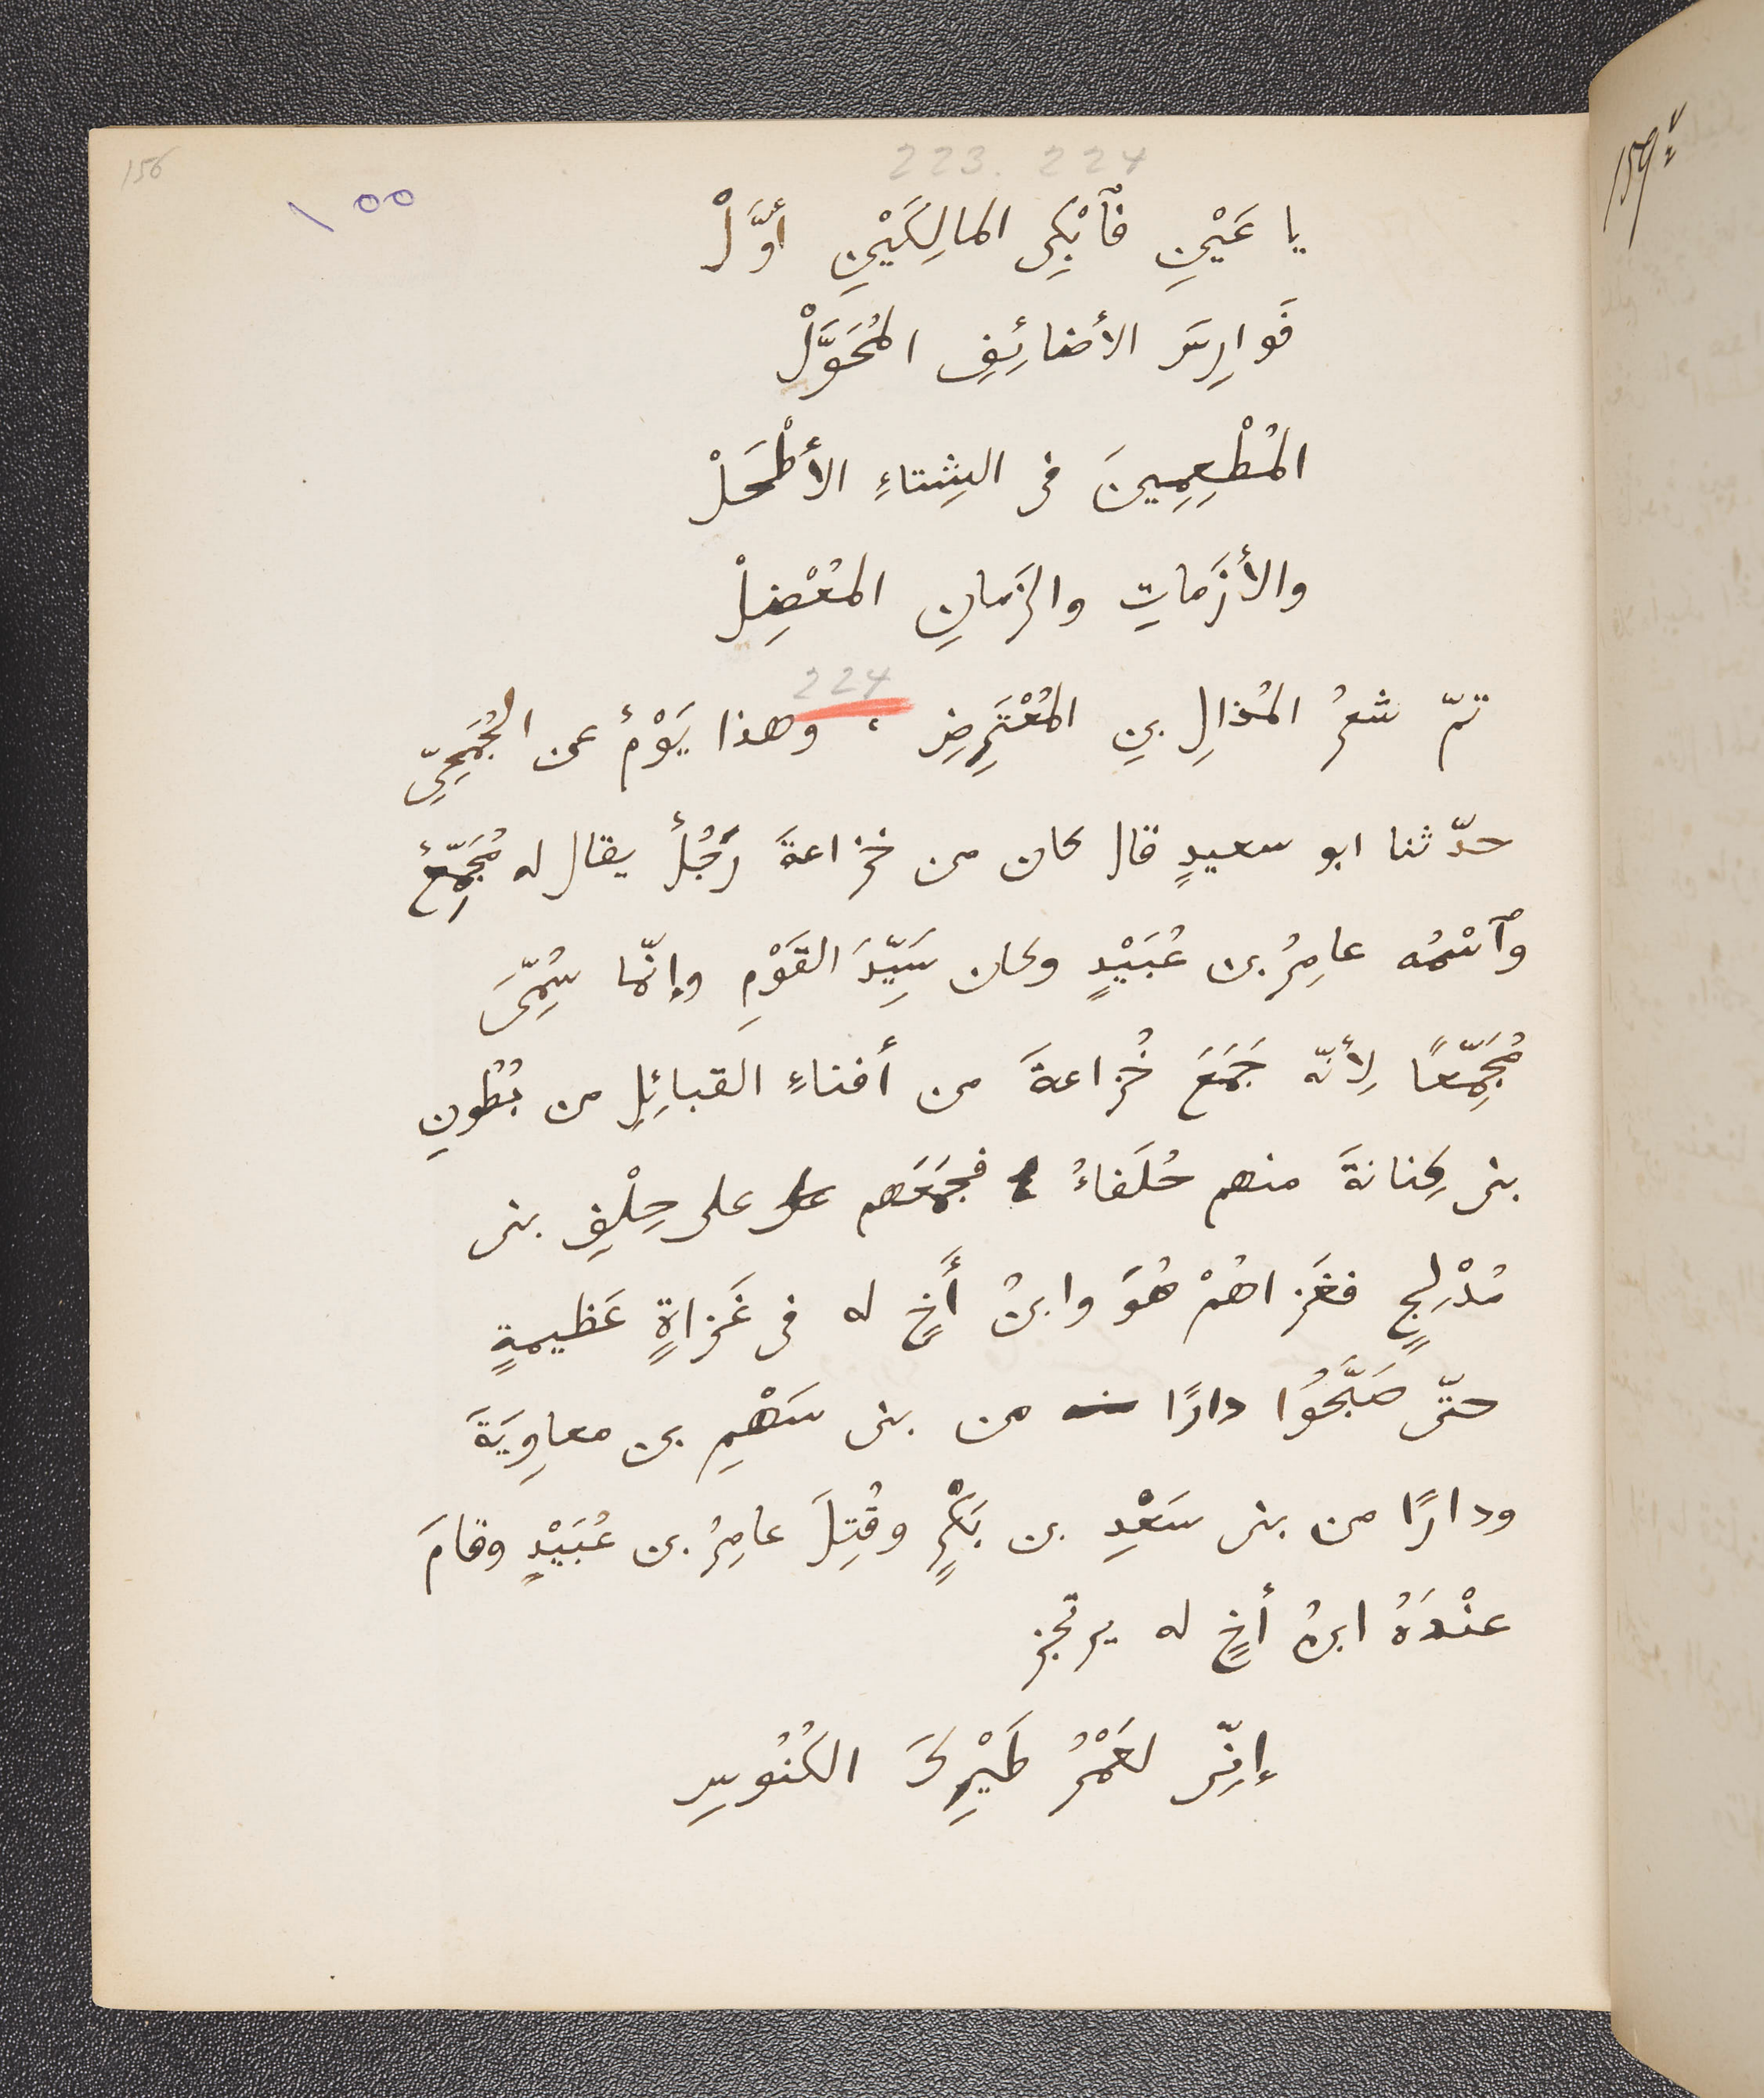 156
223. 224
١٥٥
159v
يا عَيْنِ فَٱبْكِى المالِكَيْنِ أوَّلْ
فَوارِسَ الأضائِفِ المُحَوَّلْ
المُطْعِمِينَ فى الشِتاءِ الأطْحَلْ
والأزَماتِ والزَمانِ المُعْضِلْ
224
تمّ شعرُ المُذالِ بنِ المُعْتَرِضِ ، وهذا يَوْمٌ عن الجُمَحِىّ
حدّثنا ابو سعيدٍ قال كان من خزاعةَ رَجُلٌ يقال له مُجَمِّعٌ
وٱسْمُه عامِرُ بن عُبَيْدٍ وكان سَيِّدَ القَوْمِ وإنّما سُمِّىَ
مُجَمِّعًا لِأنّه جَمَعَ خُزاعةَ من أفناءِ القبائِلِ من بُطُونِ
بنى كِنانةَ منهم حُلَفاءُ فجَمَعَهم على حِلْفِ بنى
مُدْلِجٍ فغَزاهُمْ هُوَ وابنُ أَخٍ له فى غَزاةٍ عَظيمةٍ
حتّى صَبَّحُوا دارًا من بنى سَهْمِ بن معاوِيَةَ
ودارًا من بنى سَعْدِ بن بَكْرٍ وقُتِلَ عامِرُ بن عُبَيْدٍ وقامَ
عنْدَهُ ابنُ أخٍ له يرتجز
إنِّى لعَمْرُ طَيْرِكَ الكُنُوسِ